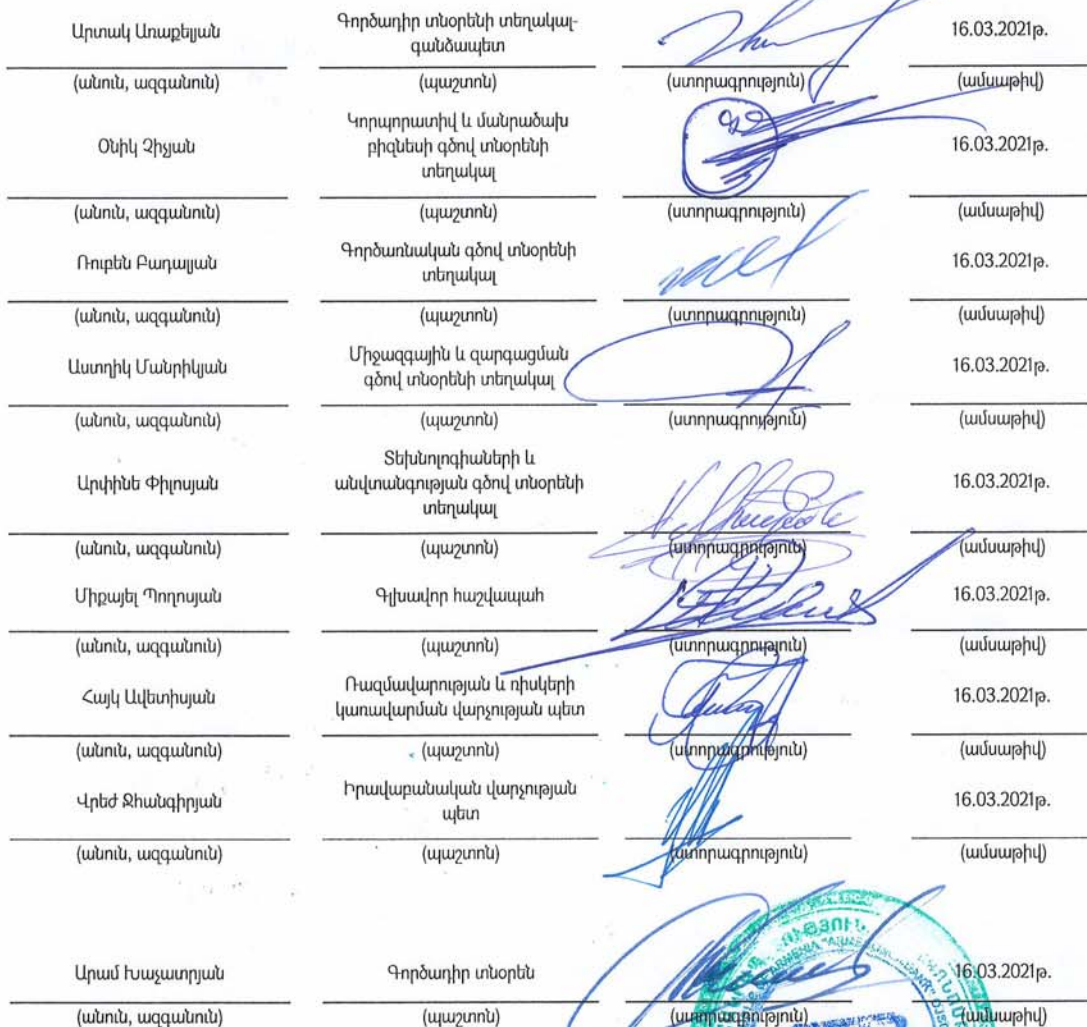 Արտակ Առաքելյան
Գործադիր տնօրենի տեղակալ-
գանձապետ
16.03.2021թ.
(անուն, ազգանուն) (պաշտոն) (ստորագրություն) (ամսաթիվ)
Օնիկ Չիչյան
Կորպորատիվ և մանրածախ
բիզնեսի գծով տնօրենի
տեղակալ
16.03.2021թ.
(անուն, ազգանուն) (պաշտոն) (ստորագրություն) (ամսաթիվ)
Ռուբեն Բադալյան
Գործառնական գծով տնօրենի
տեղակալ
16.03.2021թ.
(անուն, ազգանուն) (պաշտոն) (ստորագրություն) (ամսաթիվ)
Աստղիկ Մանրիկյան
Միջազգային և զարգացման
գծով տնօրենի տեղակալ
16.03.2021թ.
(անուն, ազգանուն) (պաշտոն) (ստորագրություն) (ամսաթիվ)
Արփինե Փիլոսյան
Տեխնոլոգիաների և
անվտանգության գծով տնօրենի
տեղակալ
16.03.2021թ.
(անուն, ազգանուն) (պաշտոն) (ստորագրություն) (ամսաթիվ)
Միքայել Պողոսյան
Գլխավոր հաշվապահ
16.03.2021թ.
(անուն, ազգանուն) (պաշտոն) (ստորագրություն) (ամսաթիվ)
Հայկ Ավետիսյան
Ռազմավարության և ռիսկերի
կառավարման վարչության պետ
16.03.2021թ.
(անուն, ազգանուն) (պաշտոն) (ստորագրություն) (ամսաթիվ)
Վրեժ Ջհանգիրյան
Իրավաբանական վարչության
պետ
16.03.2021թ.
(անուն, ազգանուն) (պաշտոն) (ստորագրություն) (ամսաթիվ)
Արամ Խաչատրյան
Գործադիր տնօրեն
16.03.2021թ.
(անուն, ազգանուն) (պաշտոն) (ստորագրություն) (ամսաթիվ)